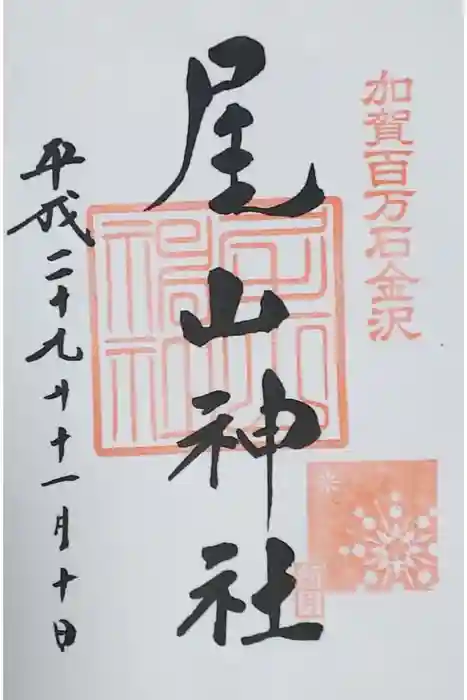 加賀百万石金沢
尾山神社
平成二十九年十一月十日